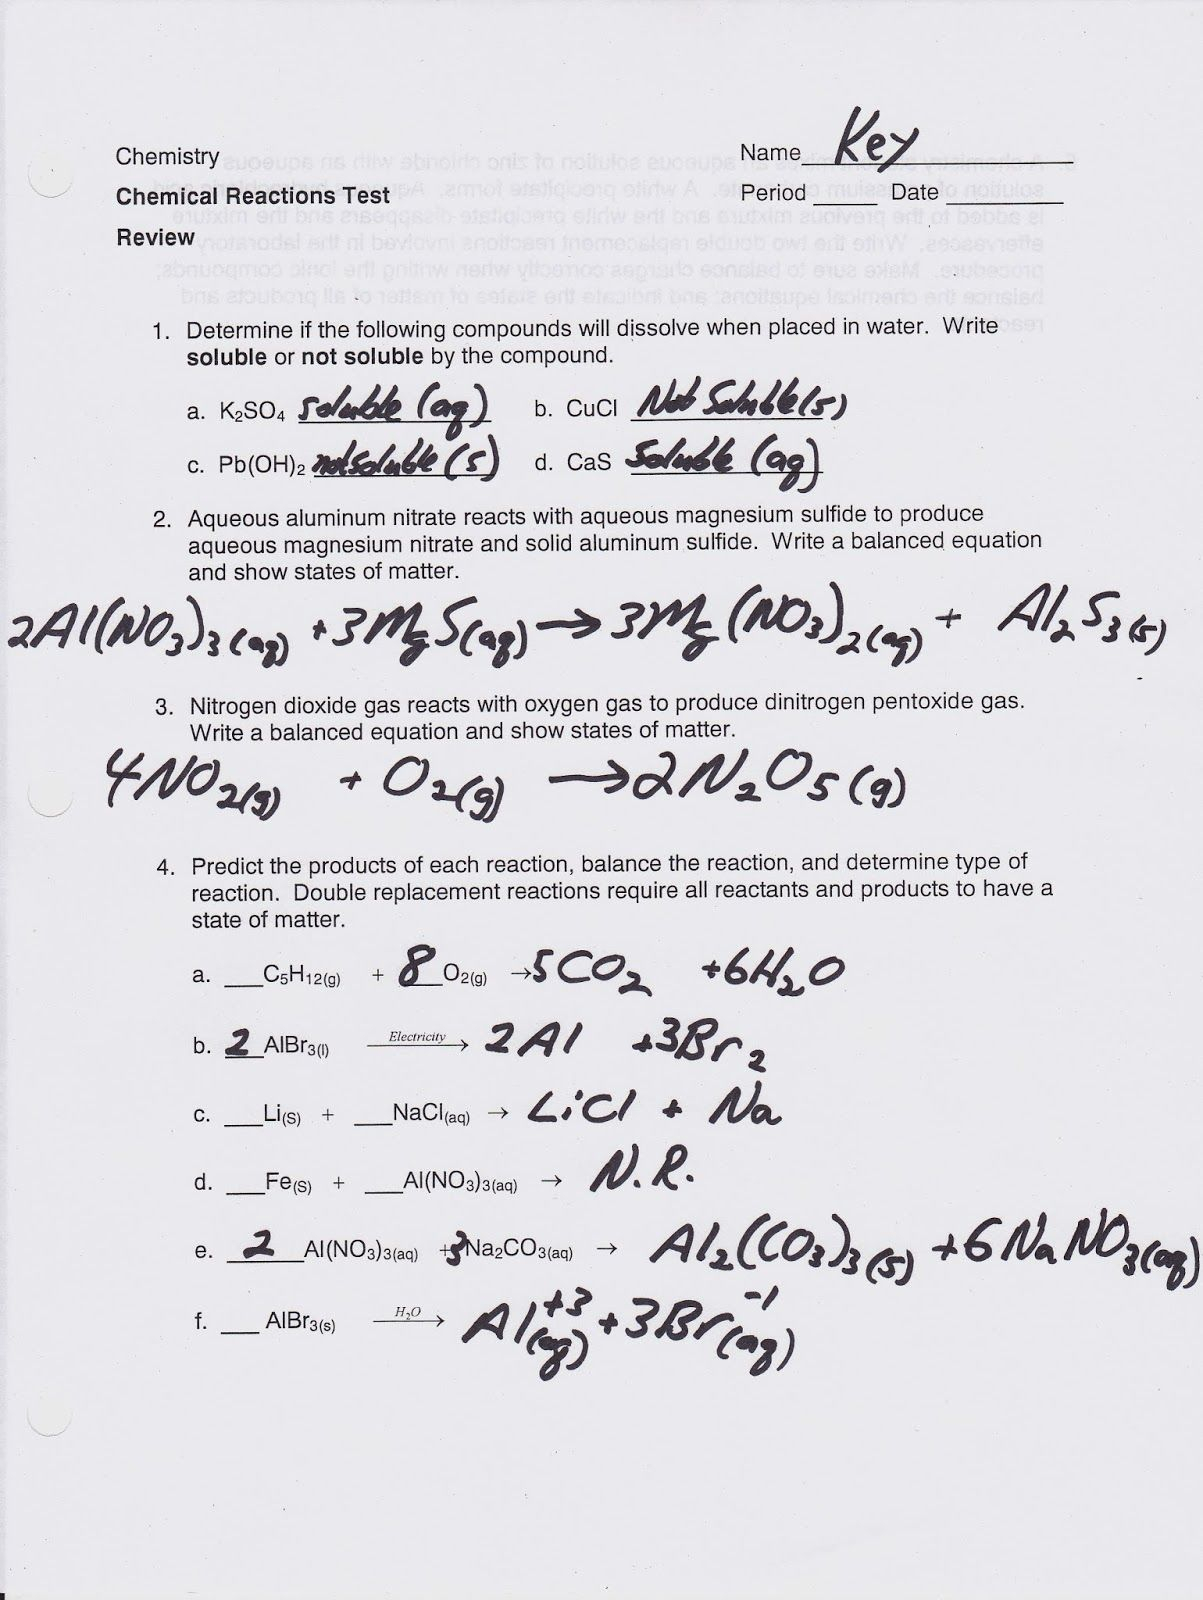 Chemistry
Name Key
Chemical Reactions Test
Period ____ Date ____
Review
1. Determine if the following compounds will dissolve when placed in water. Write
soluble or not soluble by the compound.
a. K₂SO₄ soluble (aq) b. CuCl Not Soluble (s)
c. Pb(OH)₂ not soluble (s) d. CaS Soluble (aq)
2. Aqueous aluminum nitrate reacts with aqueous magnesium sulfide to produce
aqueous magnesium nitrate and solid aluminum sulfide. Write a balanced equation
and show states of matter.
2Al(NO₃)₃(aq) + 3MgS(aq) → 3Mg(NO₃)₂(aq) + Al₂S₃(s)
3. Nitrogen dioxide gas reacts with oxygen gas to produce dinitrogen pentoxide gas.
Write a balanced equation and show states of matter.
4NO₂(g) + O₂(g) → 2N₂O₅(g)
4. Predict the products of each reaction, balance the reaction, and determine type of
reaction. Double replacement reactions require all reactants and products to have a
state of matter.
a. ___C₅H₁₂(g) + 8 O₂(g) → 5CO₂ + 6H₂O
b. 2 AlBr₃(l) Electricity → 2Al + 3Br₂
c. ___Li(s) + ___NaCl(aq) → LiCl + Na
d. ___Fe(s) + ___Al(NO₃)₃(aq) → N.R.
e. 2 Al(NO₃)₃(aq) + 3Na₂CO₃(aq) → Al₂(CO₃)₃(s) + 6NaNO₃(aq)
f. ___ AlBr₃(s) H₂O → Al⁺³(aq) + 3Br⁻¹(aq)